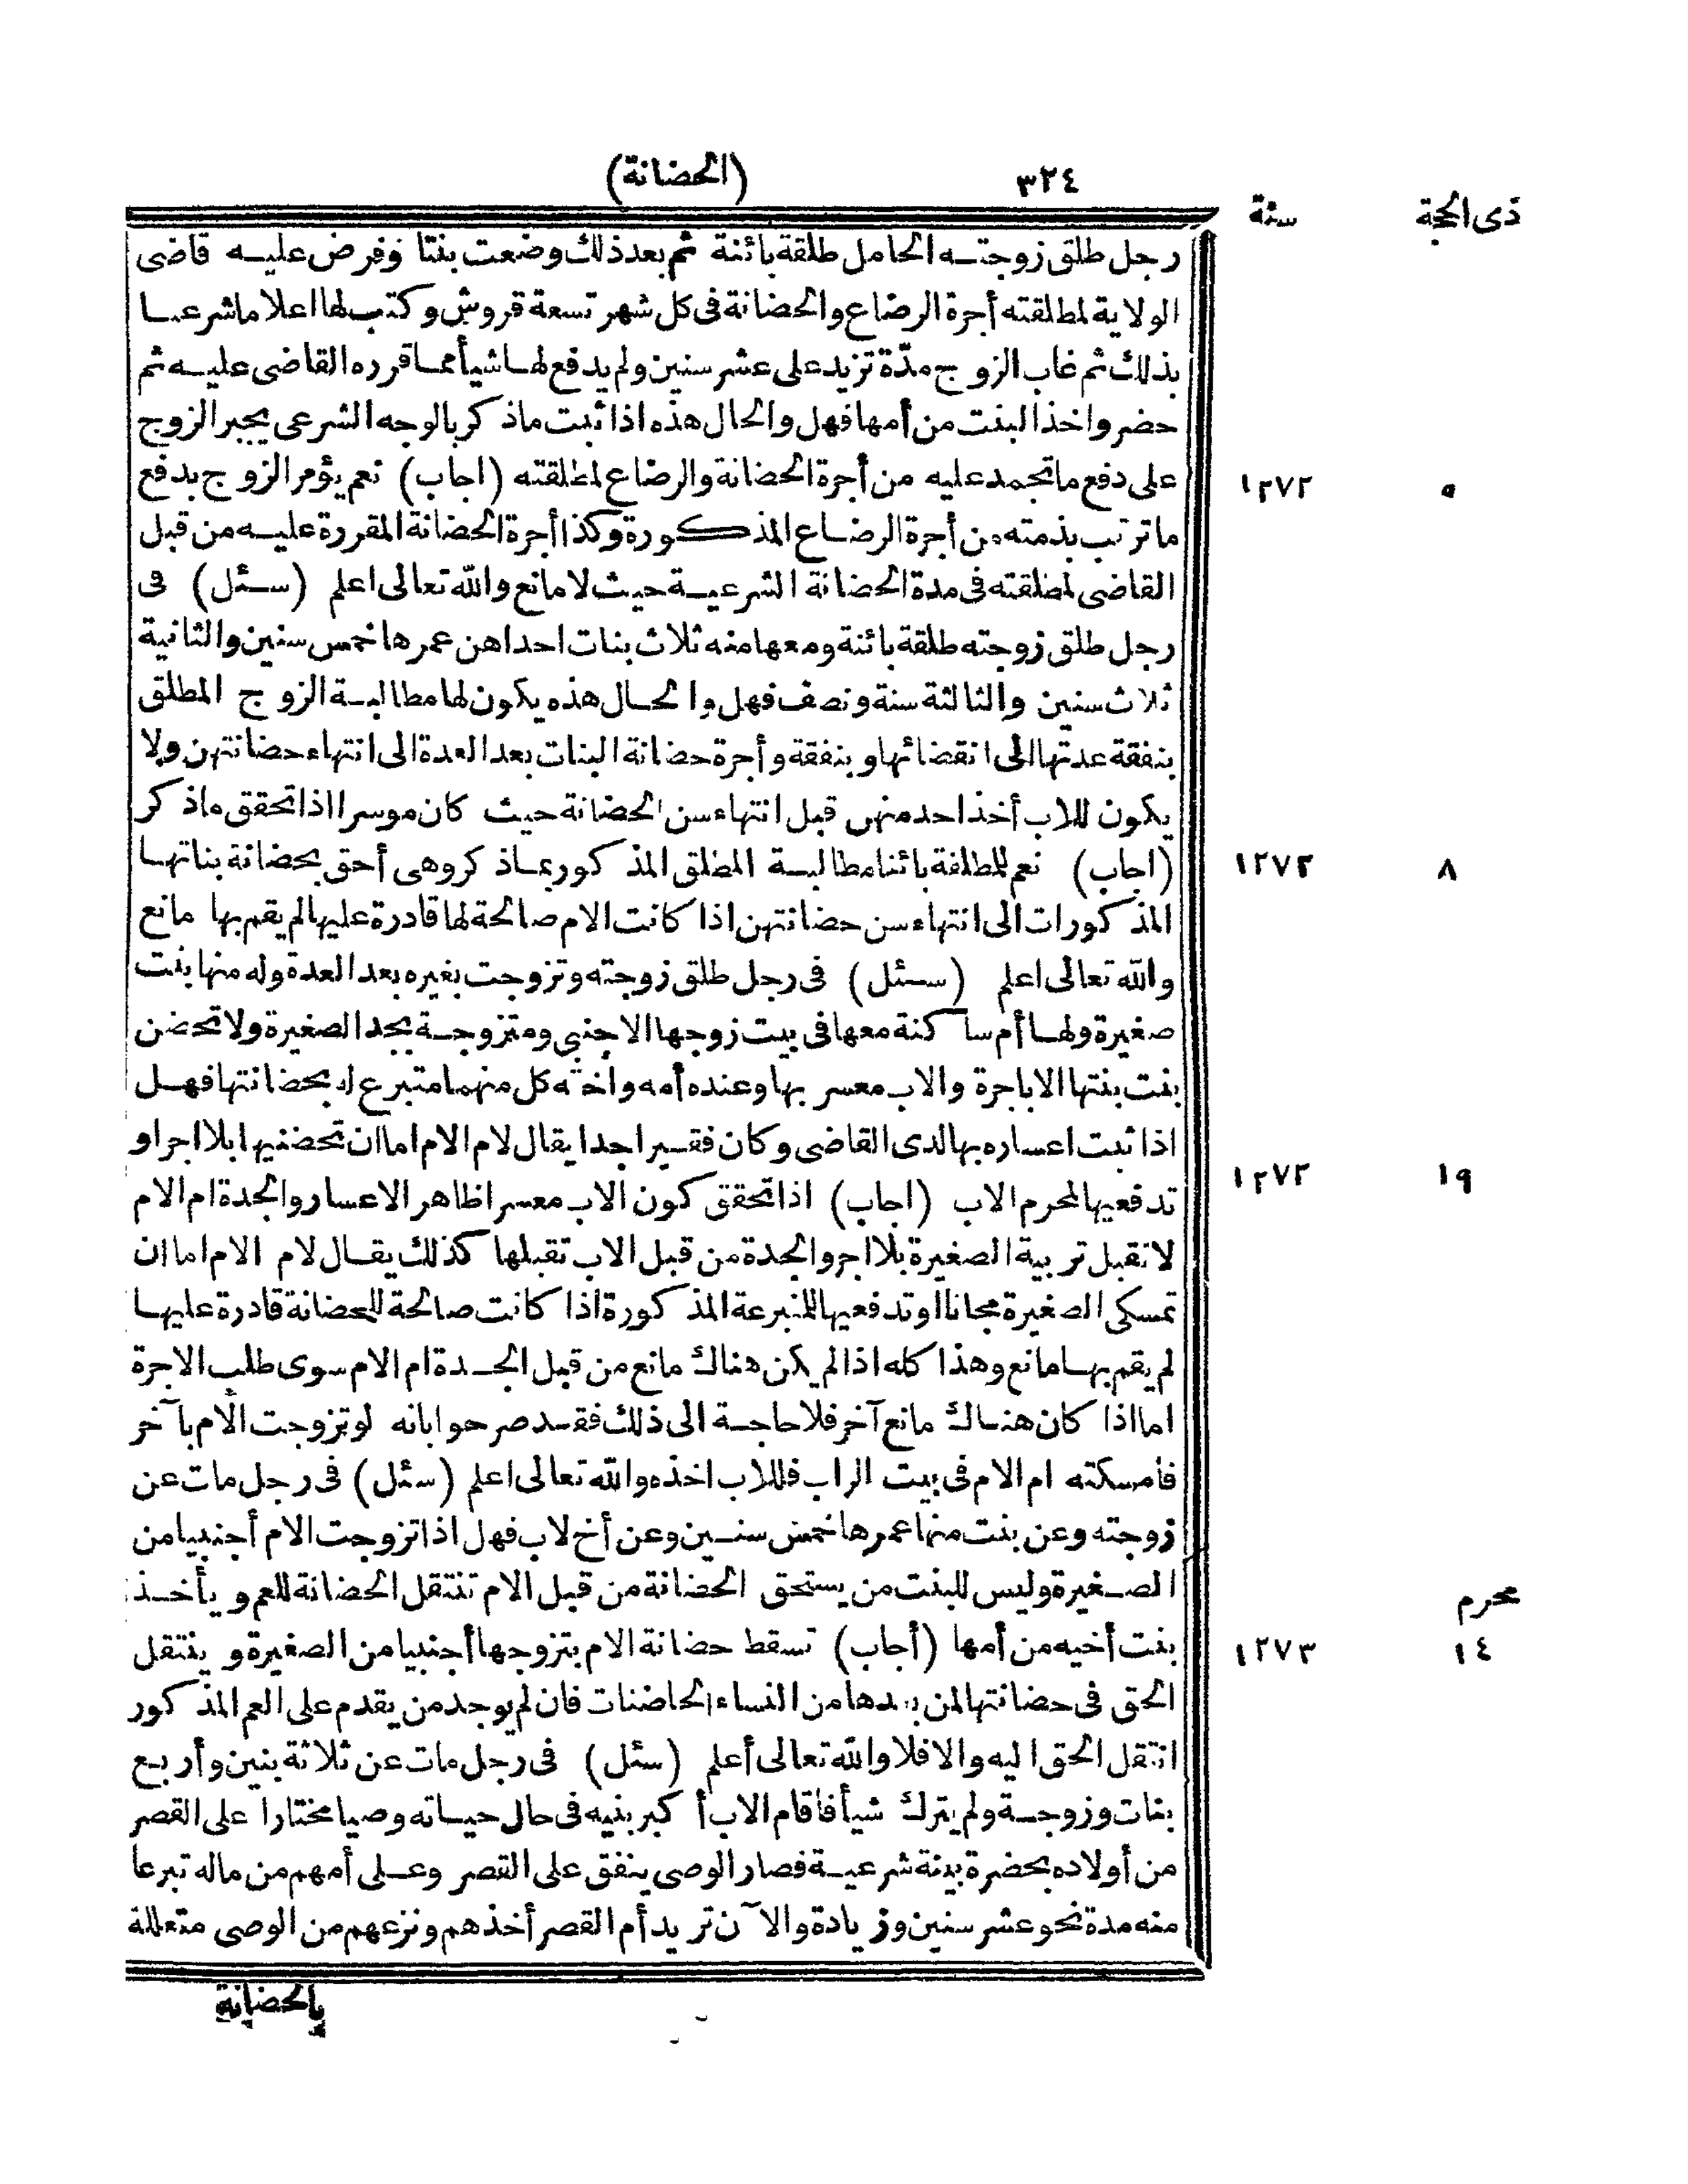 ٣٢٤ (الحضانة)
ذى الحجة سنة
رجل طلق زوجته الحامل طلقة بائنة ثم بعد ذلك وضعت بنتا وفرض عليه قاضى
الولاية لمطلقته أجرة الرضاع والحضانة فى كل شهر تسعة قروش وكتب لها اعلاما شرعيا
بذلك ثم غاب الزوج مدّة تزيد على عشر سنين ولم يدفع لها شيأ مما قرره القاضى عليه ثم
حضر واخذ البنت من أمها فهل والحال هذه اذا ثبت ما ذكر بالوجه الشرعى يجبر الزوج
على دفع ما تجمد عليه من أجرة الحضانة والرضاع لمطلقته (اجاب) نعم يؤمر الزوج بدفع
٥ ١٢٧٢
ما ترتب بذمته من أجرة الرضاع المذكورة وكذا أجرة الحضانة المقررة عليه من قبل
القاضى لمطلقته فى مدة الحضانة الشرعية حيث لا مانع والله تعالى اعلم (سئل) فى
رجل طلق زوجته طلقة بائنة ومعها منه ثلاث بنات احداهن عمرها خمس سنين والثانية
ثلاث سنين والثالثة سنة ونصف فهل والحال هذه يكون لها مطالبة الزوج المطلق
بنفقة عدتها الى انقضائها وبنفقة وأجرة حضانة البنات بعد العدة الى انتهاء حضانتهن ولا
يكون للاب أخذ احد منهن قبل انتهاء سن الحضانة حيث كان موسرا اذا تحقق ما ذكر
(اجاب) نعم للمطلقة بائنا مطالبة المطلق المذكور بما ذكر وهى أحق بحضانة بناتها
٨ ١٢٧٢
المذكورات الى انتهاء سن حضانتهن اذا كانت الام صالحة لها قادرة عليها لم يقم بها مانع
والله تعالى اعلم (سئل) فى رجل طلق زوجته وتزوجت بغيره بعد العدة وله منها بنت
صغيرة ولها أم ساكنة معها فى بيت زوجها الاجنبى ومتزوجة بجد الصغيرة ولا تحضن
بنت بنتها الا باجرة والاب معسر بها وعنده أمه واخته كل منهما متبرع له بحضانتها فهل
اذا ثبت اعساره بها لدى القاضى وكان فقيرا جدا يقال لام الام اما ان تحضنيها بلا اجر او
تدفعيها لمحرم الاب (اجاب) اذا تحقق كون الاب معسرا ظاهر الاعسار والجدة ام الام
١٩ ١٢٧٢
لا تقبل تربية الصغيرة بلا اجر والجدة من قبل الاب تقبلها كذلك يقال لام الام اما ان
تمسكى الصغيرة مجانا او تدفعيها للمتبرعة المذكورة اذا كانت صالحة للحضانة قادرة عليها
لم يقم بها مانع وهذا كله اذا لم يكن هناك مانع من قبل الجدة ام الام سوى طلب الاجرة
اما اذا كان هناك مانع آخر فلا حاجة الى ذلك فقد صرحوا بانه لو تزوجت الام بآخر
فأمسكته ام الام فى بيت الراب فللاب اخذه والله تعالى اعلم (سئل) فى رجل مات عن
زوجته وعن بنت منها عمرها خمس سنين وعن أخ لاب فهل اذا تزوجت الام أجنبيا من
الصغيرة وليس للبنت من يستحق الحضانة من قبل الام تنتقل الحضانة للعم ويأخذ
محرم
بنت أخيه من أمها (أجاب) تسقط حضانة الام بتزوجها أجنبيا من الصغيرة وينتقل
١٤ ١٢٧٣
الحق فى حضانتها لمن بعدها من النساء الحاضنات فان لم يوجد من يقدم على العم المذكور
انتقل الحق اليه والا فلا والله تعالى أعلم (سئل) فى رجل مات عن ثلاثة بنين وأربع
بنات وزوجة ولم يترك شيأ فأقام الاب أكبر بنيه فى حال حياته وصيا مختارا على القصر
من أولاده بحضرة بينة شرعية فصار الوصى ينفق على القصر وعلى أمهم من ماله تبرعا
منه مدة نحو عشر سنين وزيادة والآن تريد أم القصر أخذهم ونزعهم من الوصى متعللة
بالحضانة